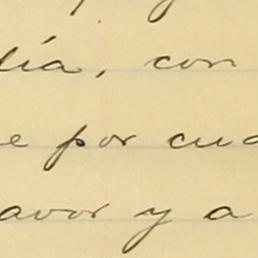 día, con
e por cua
avor y a